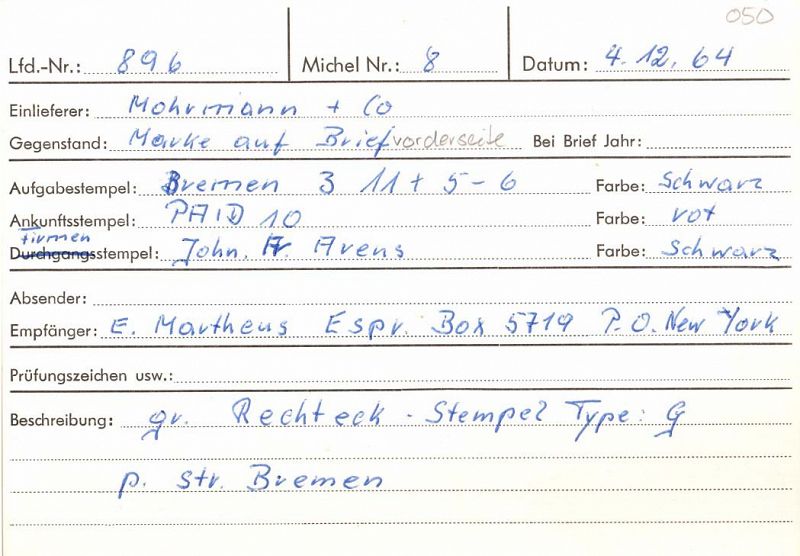 050
Lfd.-Nr.: 896 Michel Nr.: 8 Datum: 4.12.64
Einlieferer: Mohrmann + Co
Gegenstand: Marke auf Briefvorderseite Bei Brief Jahr:
Aufgabestempel: Bremen 3 11 + 5-6 Farbe: Schwarz
Ankunftsstempel: PAID 10 Farbe: rot
firmen
Durchgangsstempel: John. Fr. Arens Farbe: Schwarz
Absender:
Empfänger: E. Martheus Espr. Box 5719 P.O. New York
Prüfungszeichen usw.:
Beschreibung: gr. Rechteck-Stempel Type: G
p. str. Bremen